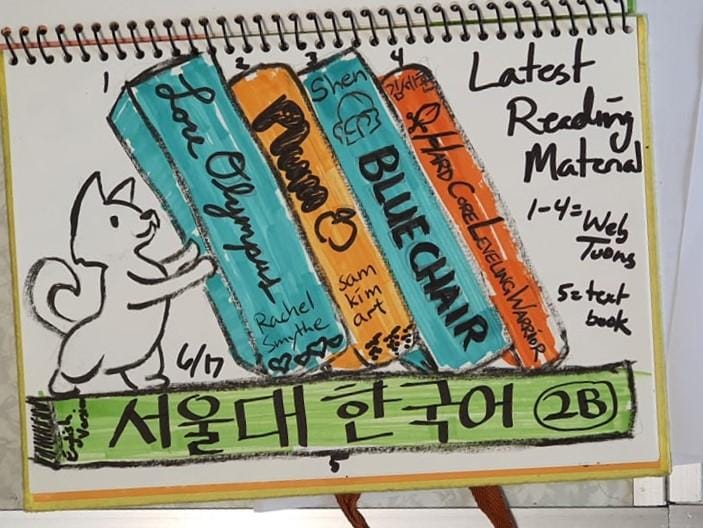 Latest
Reading
Material
1-4= Web
Toons
5= text
book
1
Lore Olympus
Rachel
Smythe
2
Mum
sam
kim
art
3
Shen
BLUE CHAIR
4
HARD CORE LEVELING WARRIOR
6/17
서울대 한국어 2B
5